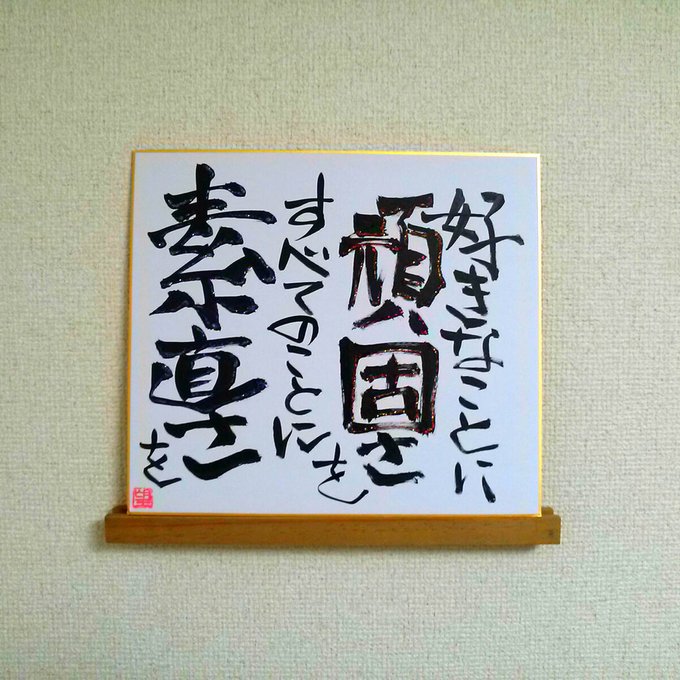 好きなことに
頑固さを
すべてのことに
素直さを